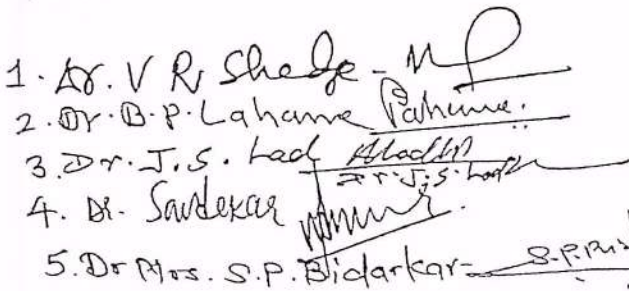 1. Dr. V R Shedge -
2. Dr. B. P. Lahane
3. Dr. J. S. Lad
Dr. J. S. Lad
4. Dr. Savdekar
5. Dr Mrs. S. P. Bidarkar - S. P.